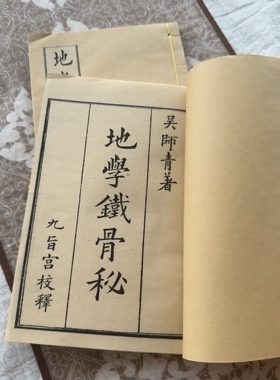 吴師青著
地學鐵骨秘
九旨宫校釋
地